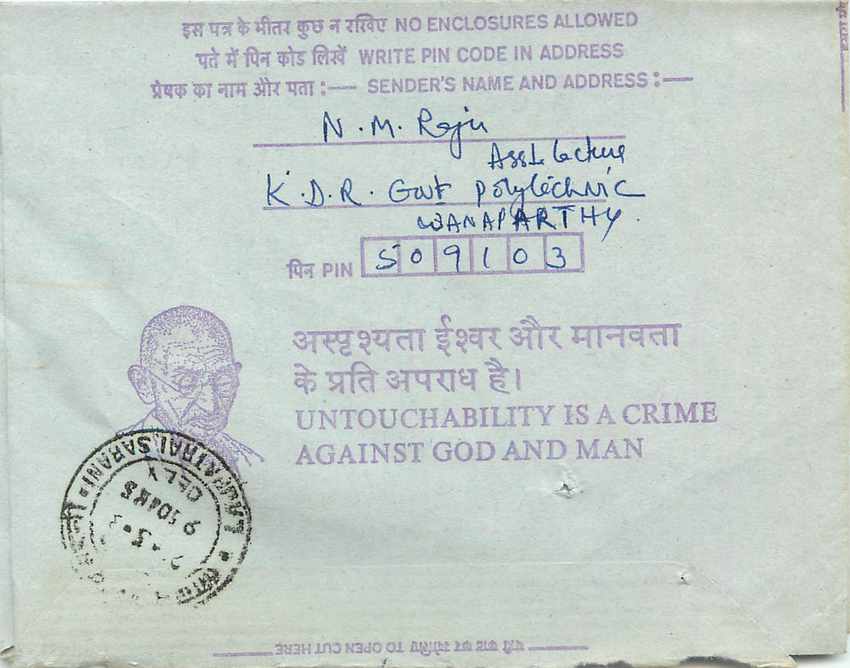 इस पत्र के भीतर कुछ न रखिए NO ENCLOSURES ALLOWED
पते में पिन कोड लिखें WRITE PIN CODE IN ADDRESS
प्रेषक का नाम और पता :— SENDER'S NAME AND ADDRESS :—
N. M. Raju
Asst Lecture
K.D.R. Govt Polytechnic
WANAPARTHY.
पिन PIN 509103
अस्पृश्यता ईश्वर और मानवता
के प्रति अपराध है।
UNTOUCHABILITY IS A CRIME
AGAINST GOD AND MAN
LAJPATRAI SARANI
DELY
9 30HRS
TO OPEN CUT HERE